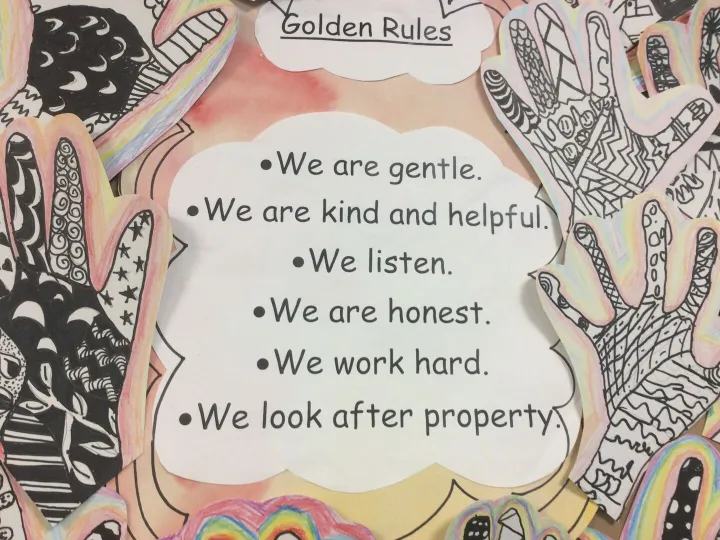 Golden Rules
•We are gentle.
•We are kind and helpful.
•We listen.
•We are honest.
•We work hard.
•We look after property.